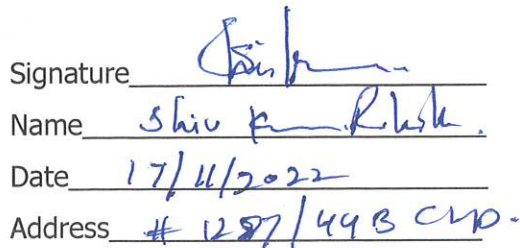 Signature
Name Shiv
Date 17/11/2022
Address # 1287/44B CHD.